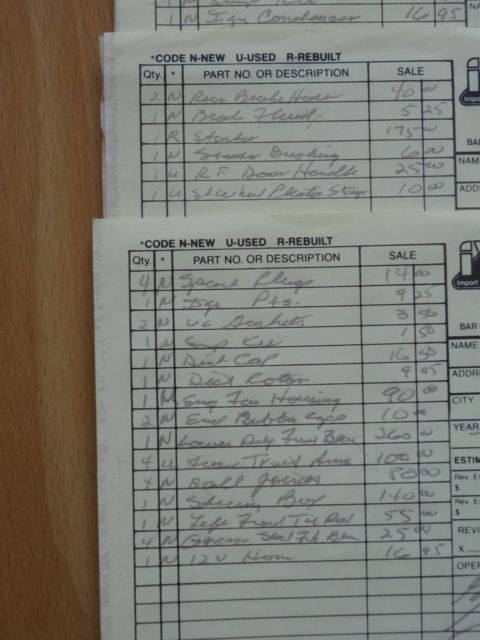 1 N Ign Condenser 16 95
*CODE N-NEW U-USED R-REBUILT
Qty. * PART NO. OR DESCRIPTION SALE
2 N Rear Brake Hoses 40 00
1 N Brake Fluid 5 25
1 R Starter 175 00
1 N Starter Bushing 6 00
1 U R F Door Handle 25 00
1 U 10 00
Import
BA
NAM
ADD
*CODE N-NEW U-USED R-REBUILT
Qty. * PART NO. OR DESCRIPTION SALE
4 N Spark Plugs 14 00
1 N Ign Pts. 9 25
2 N V.C Gaskets 3 50
1 N Kit 1 50
1 N Dist Cap 16 50
1 N Dist Rotor 9 95
1 N Eng Fan Housing 90 00
2 N End Rubber Caps 10 00
1 N Lower Front Beam 260 00
4 U Front Trail Arms 100 00
4 N Ball Joints 80 00
1 N Steering Box 140 00
1 N Left Front Tie Rod 55 00
4 N Grease Seal 25 00
1 N 12 V Horn 16 95
Import
BAR
NAME
ADDR
CITY
YEAR
ESTIM
Rev Es
$
Rev Es
$
REVI
X
OPER